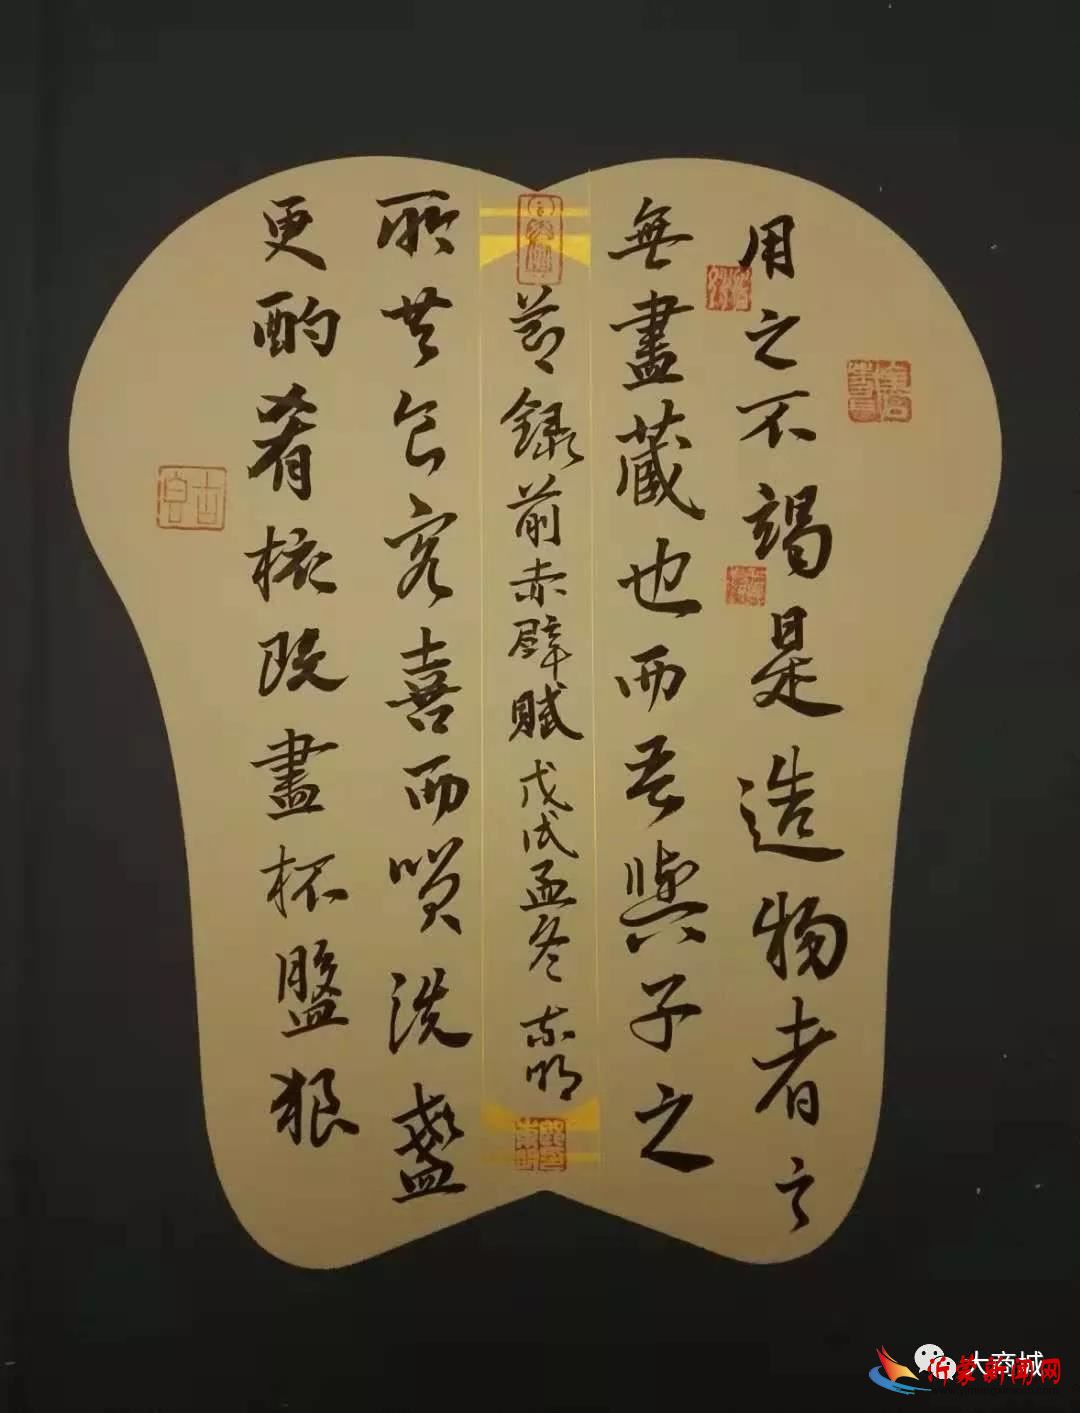 用之不竭是造物者之
無盡藏也而吾與子之
節錄前赤壁賦 戊戌孟冬
所共食客喜而笑洗盞
更酌肴核既盡杯盤狼
大商城
沂蒙新闻网